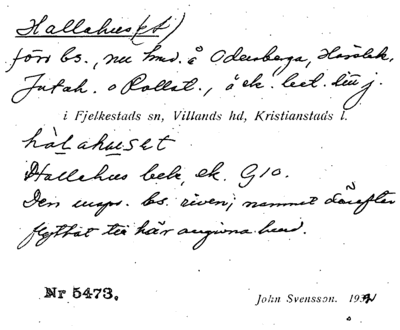 Hallahus(et)
förr bs., nu hmd. å Odersberga,
Jutah. o Rollst., å ek.
i Fjelkestads sn, Villands hd, Kristianstads l.
hàlahuset
Hallahus bek, ek. G10.
Den urspr. bs. riven; namnet därefter
flyttat till här angivna hmd.
Nr 5473.
John Svensson. 193